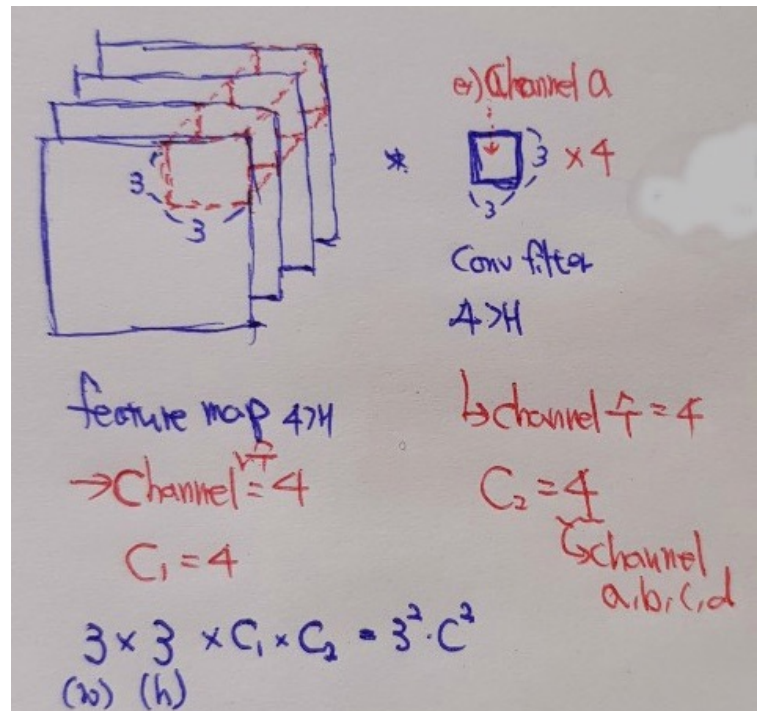 ex) Channel a
3
3
*
3
3
x 4
Conv filter
4개
feature map 4개
→ Channel 수 = 4
C₁ = 4
↳ channel 수 = 4
C₂ = 4
↳ channel
a, b, c, d
3 × 3 × C₁ × C₂ = 3² · C²
(w) (h)